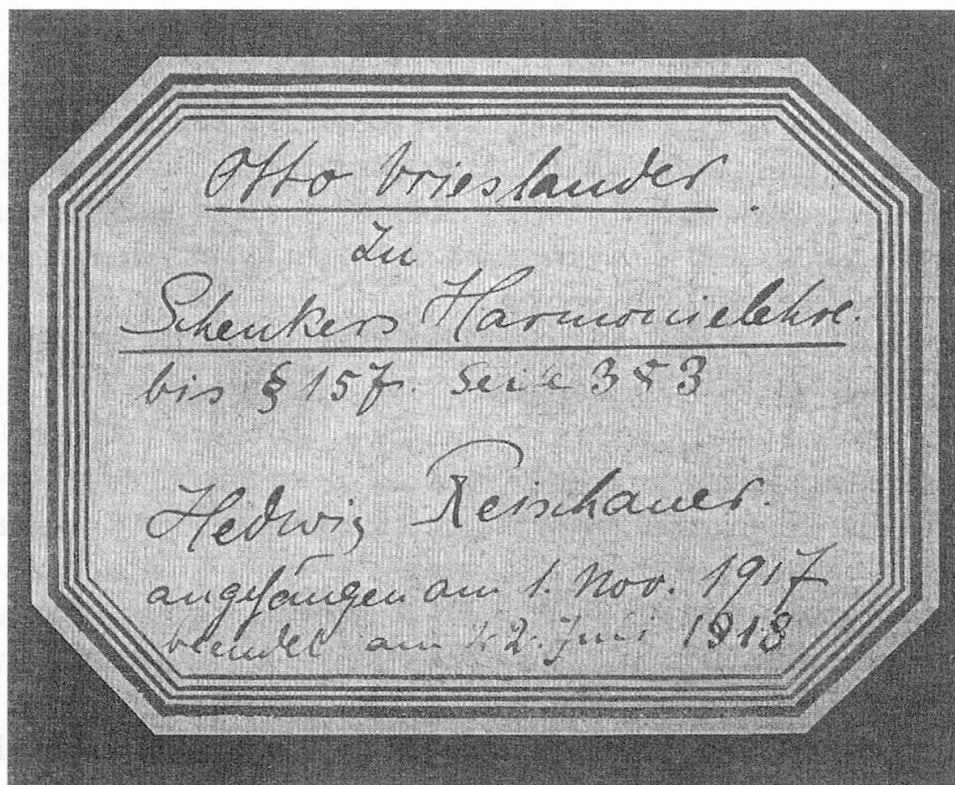 Otto Vrieslander.
Zu
Schenkers Harmonielehre.
bis § 157. Seite 353
Hedwig Reischauer.
angefangen am 1. Nov. 1917
beendet am Juli 1918